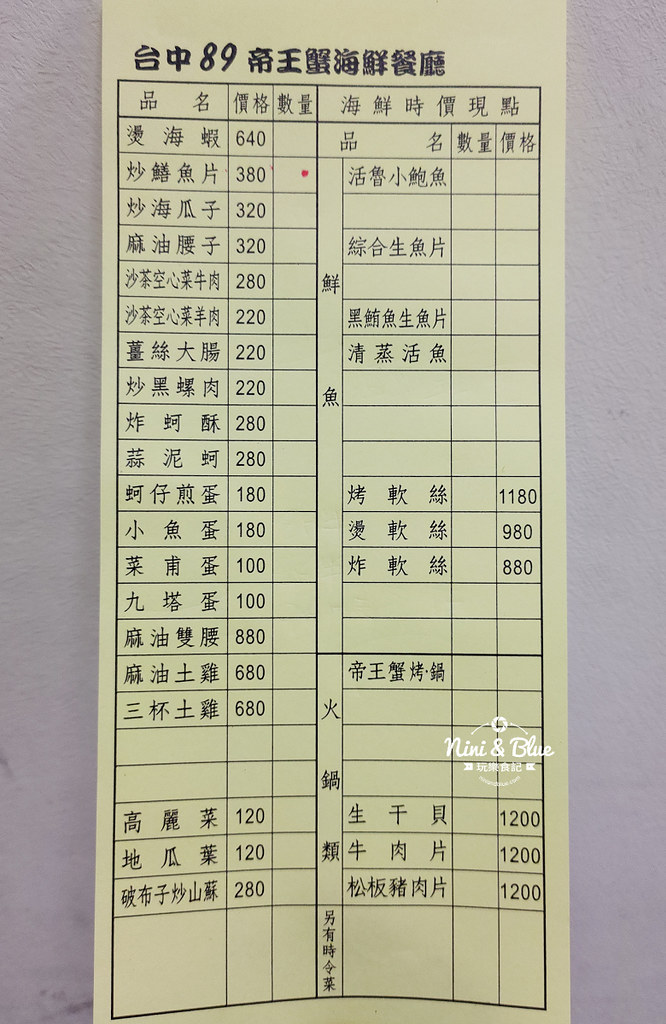 台中89帝王蟹海鮮餐廳
品名 價格 數量
燙海蝦 640
炒鱔魚片 380
炒海瓜子 320
麻油腰子 320
沙茶空心菜牛肉 280
沙茶空心菜羊肉 220
薑絲大腸 220
炒黑螺肉 220
炸蚵酥 280
蒜泥蚵 280
蚵仔煎蛋 180
小魚蛋 180
菜甫蛋 100
九塔蛋 100
麻油雙腰 880
麻油土雞 680
三杯土雞 680
高麗菜 120
地瓜葉 120
破布子炒山蘇 280
海鮮時價現點
品名 數量 價格
鮮魚
活魯小鮑魚
綜合生魚片
黑鮪魚生魚片
清蒸活魚
烤軟絲 1180
燙軟絲 980
炸軟絲 880
火鍋類
帝王蟹烤·鍋
生干貝 1200
牛肉片 1200
松板豬肉片 1200
另有時令菜
Nini & Blue
玩樂食記